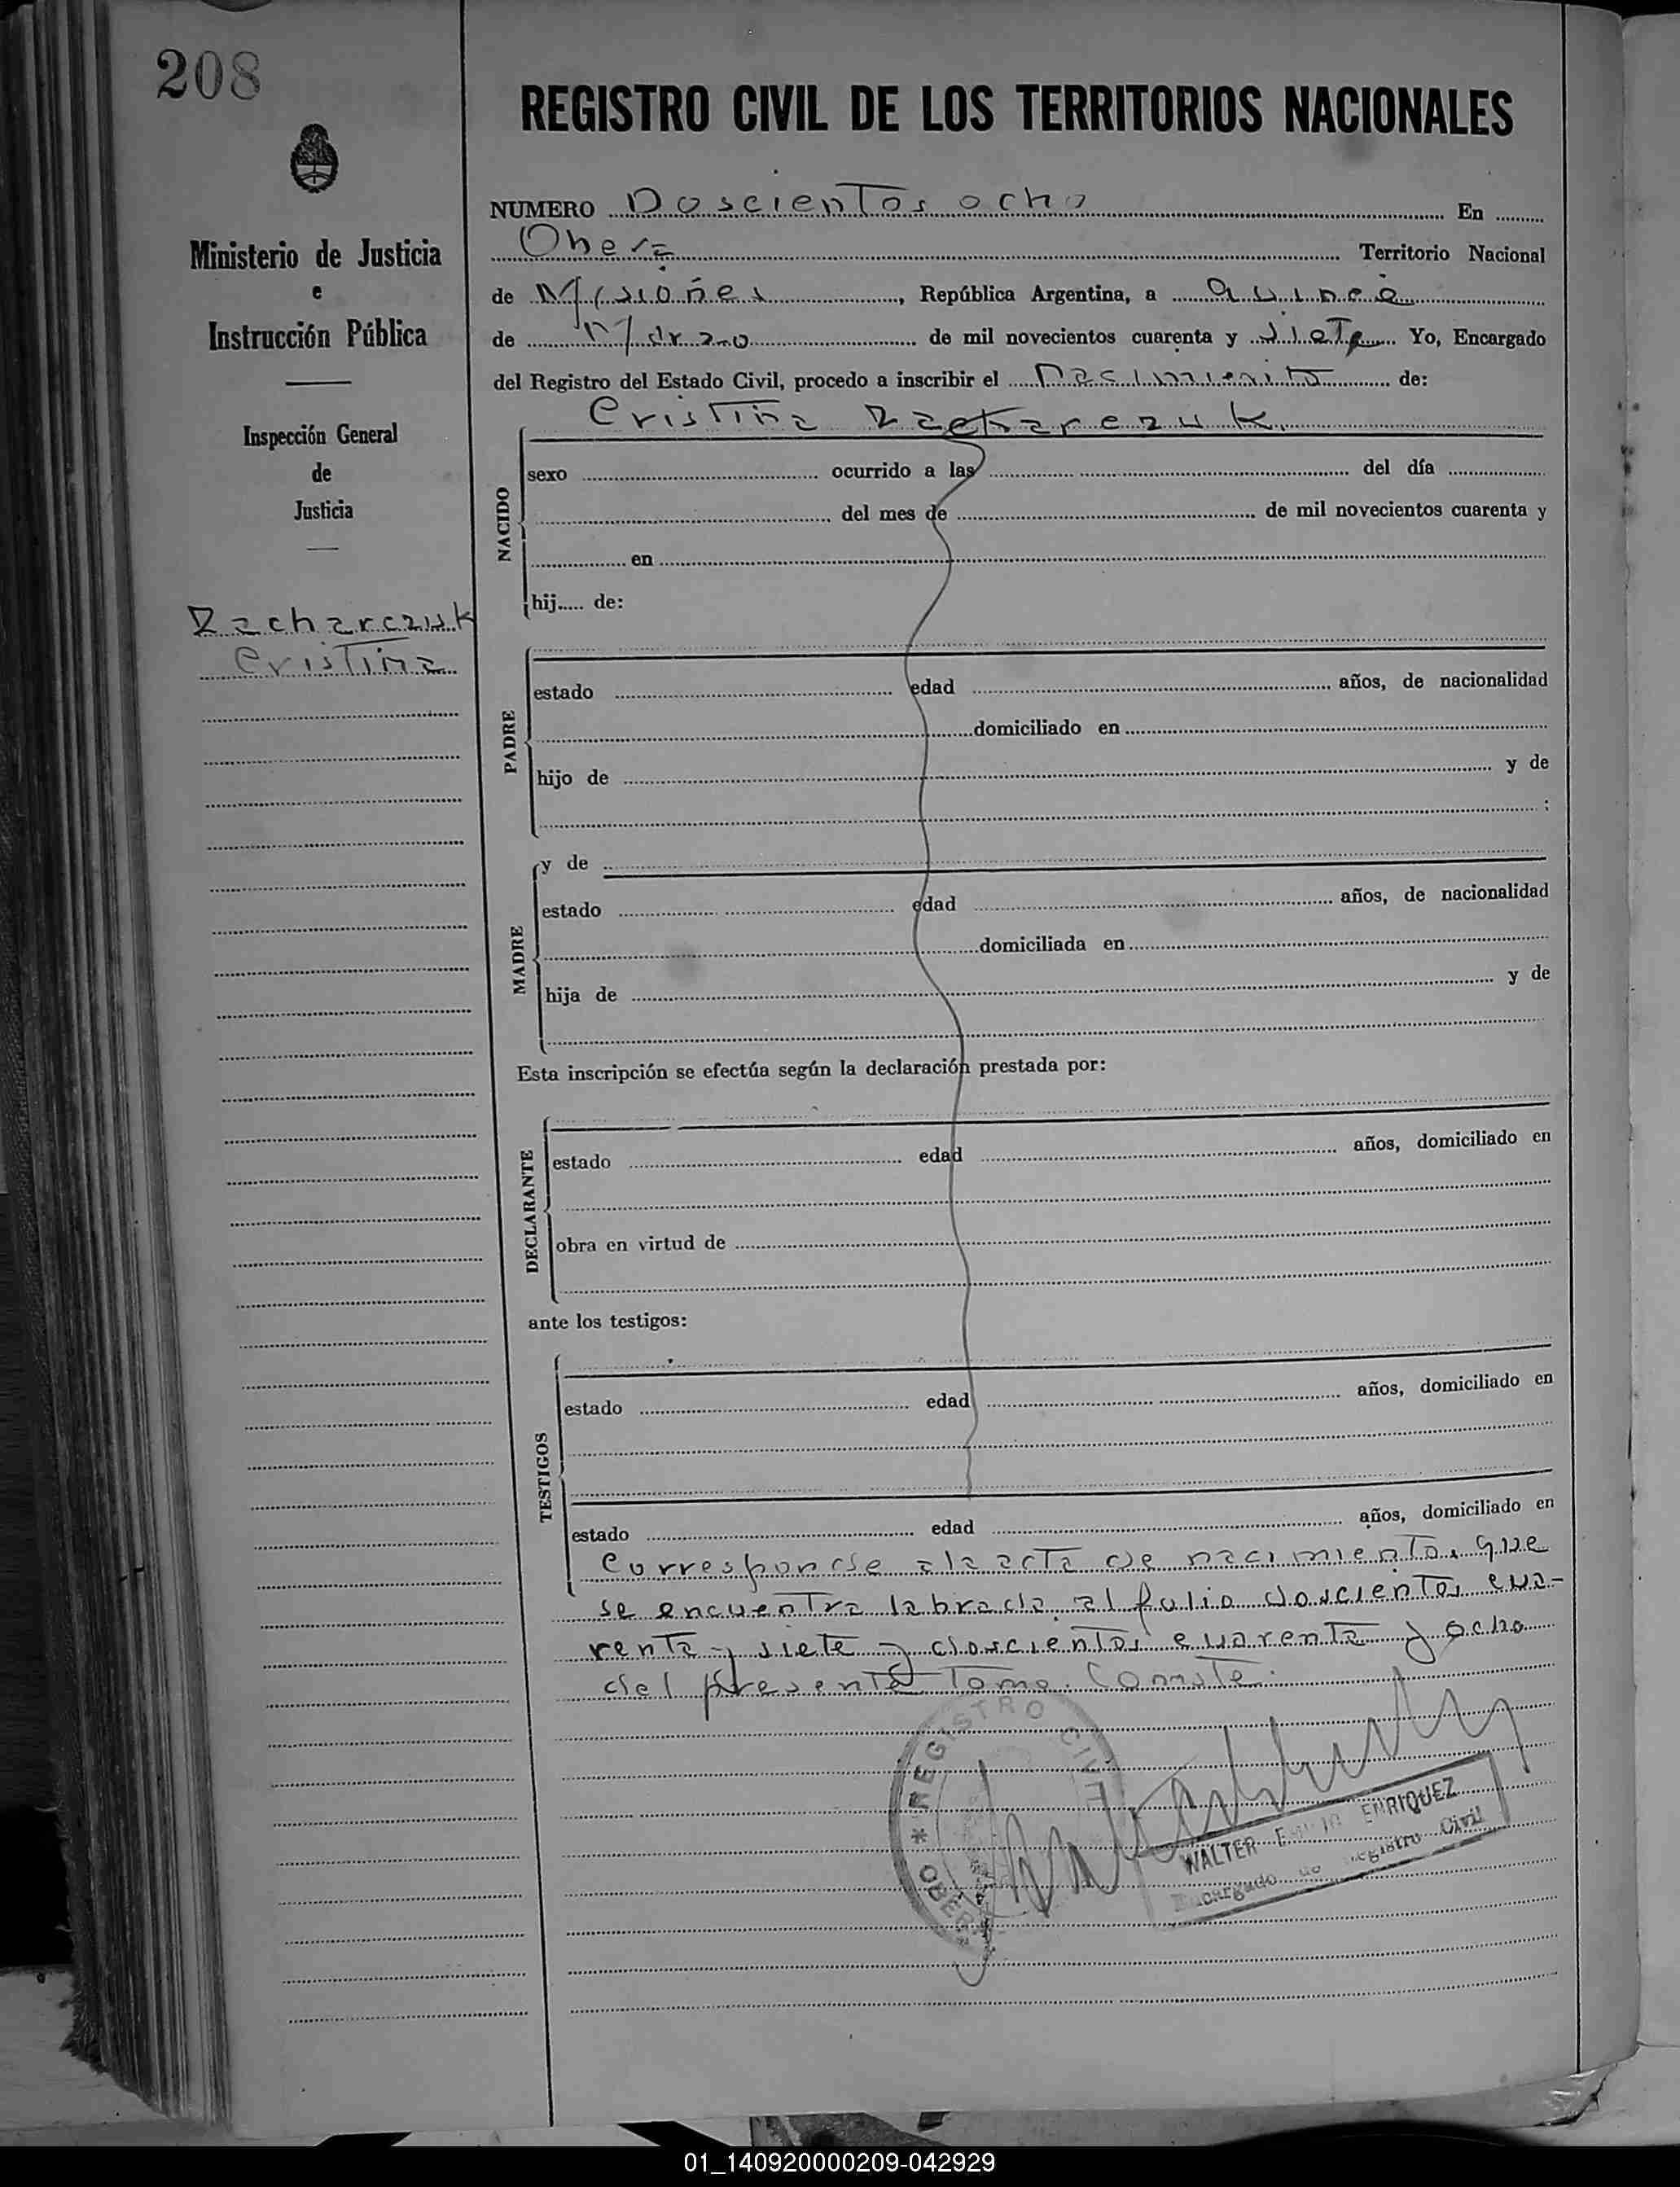 208
REGISTRO CIVIL DE LOS TERRITORIOS NACIONALES
Ministerio de Justicia
e
Instrucción Pública
Inspección General
de
Justicia
Zacharczuk
Cristina
NUMERO Doscientos ocho En
Oberá Territorio Nacional
de Misiones, República Argentina, a quince
de Marzo de mil novecientos cuarenta y siete Yo, Encargado
del Registro del Estado Civil, procedo a inscribir el nacimiento de:
Cristina Zacharczuk
NACIDO
sexo ocurrido a las del día
del mes de de mil novecientos cuarenta y
en
hij..... de:
PADRE
estado edad años, de nacionalidad
domiciliado en
hijo de y de
;
MADRE
y de
estado edad años, de nacionalidad
domiciliada en
hija de y de
Esta inscripción se efectúa según la declaración prestada por:
DECLARANTE
estado edad años, domiciliado en
obra en virtud de
ante los testigos:
TESTIGOS
estado edad años, domiciliado en
estado edad años, domiciliado en
Corresponde al acta de nacimiento, que
se encuentra labrada al folio doscientos cua-
renta y siete y doscientos cuarenta y ocho
del presente Tomo. Conste.
REGISTRO CIVIL
* OBERÁ
WALTER EMILIO ENRIQUEZ
Encargado de Registro Civil
01_140920000209-042929